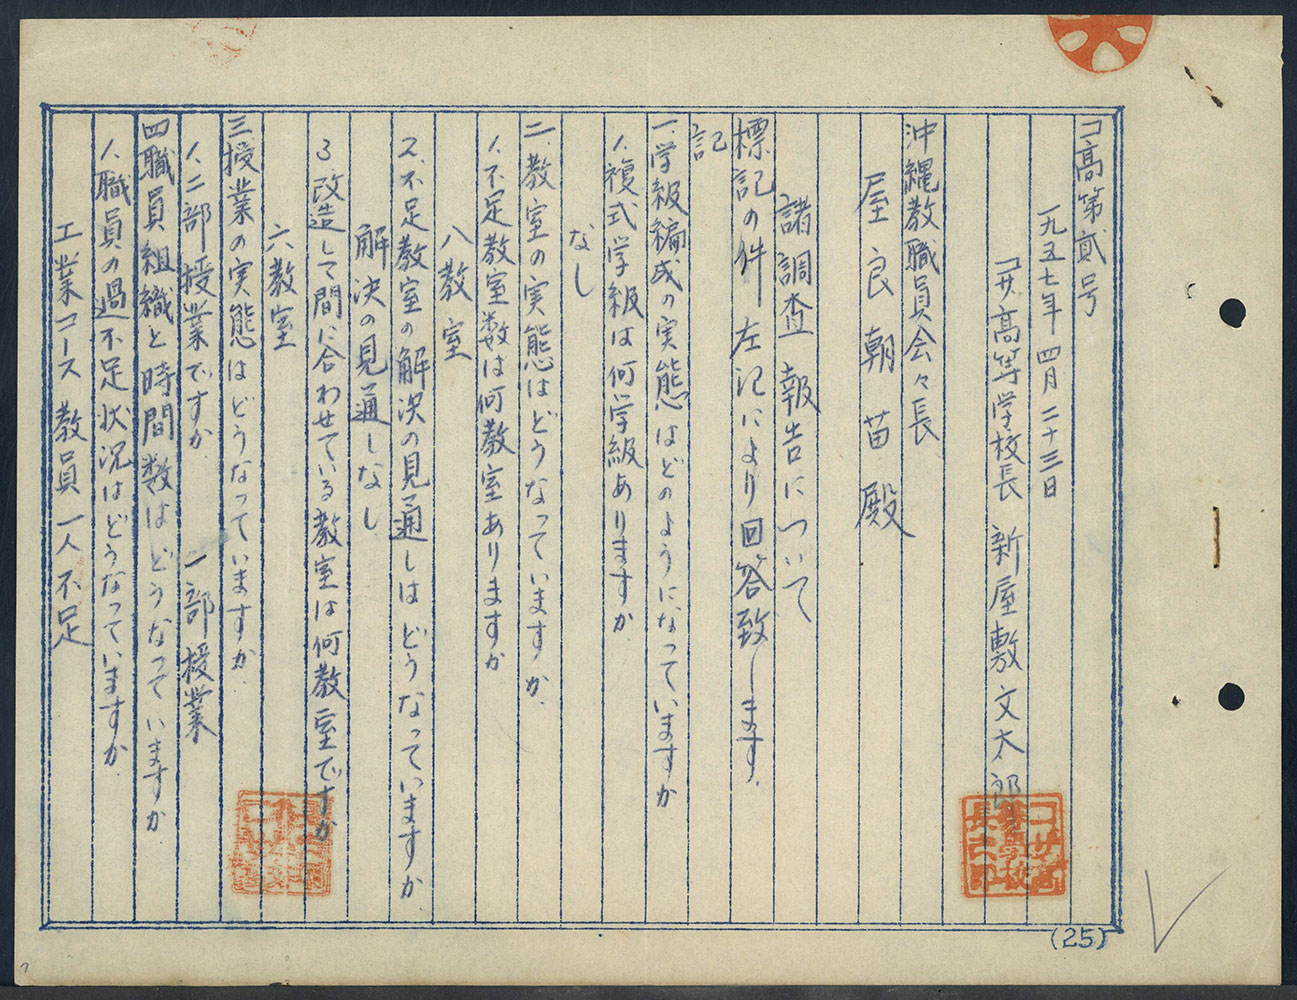 コ高第貳号
一九五七年四月二十三日
コザ高等学校長 新屋敷文太郎
沖縄教職員会々長
屋良朝苗殿
諸調査報告について
標記の件左記により回答致します.
記
一.学級編成の実態はどのようになっていますか
1.複式学級は何学級ありますか.
なし
二.教室の実態はどうなっていますか.
1.不足教室数は何教室ありますか
八教室
2.不足教室の解決の見通しはどうなっていますか.
解決の見通しなし
3改造して間に合わせている教室は何教室ですか
六教室
三.授業の実態はどうなっていますか.
1.二部授業ですか. 一部授業
四職員組織と時間数はどうなっていますか.
1.職員の過不足状況はどうなっていますか.
工業コース教員一人不足
(25)